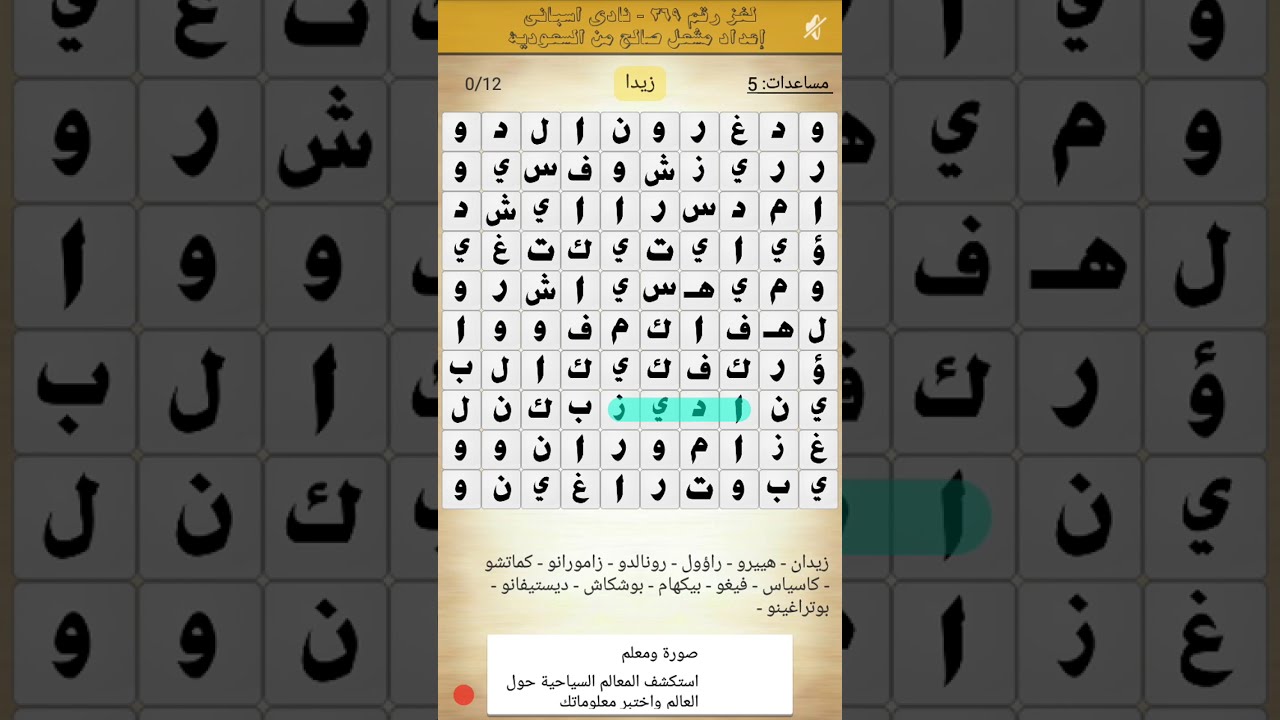 لغز رقم ٣٦٩ - نادى اسبانى
إعداد مشعل صالح من السعودية
مساعدات: 5
زيدا
0/12
و د غ ر و ن ا ل د و
ر ر ي ز ش و ف س ي و
ا م د س ر ا ا ي ش د
ؤ ي ا ي ت ي ك ت غ ي
و م ي هـ س ي ا ش ر و
ل هـ ف ا ك م ف و و ا
ؤ ر ك ف ك ي ك ا ل ب
ي ن ا د ي ز ب ك ن ل
غ ز ا م و ر ا ن و و
ي ب و ت ر ا غ ي ن و
زيدان - هييرو - راؤول - رونالدو - زامورانو - كماتشو
- كاسياس - فيغو - بيكهام - بوشكاش - ديستيفانو -
بوتراغينو -
صورة ومعلم
استكشف المعالم السياحية حول
العالم واختبر معلوماتك